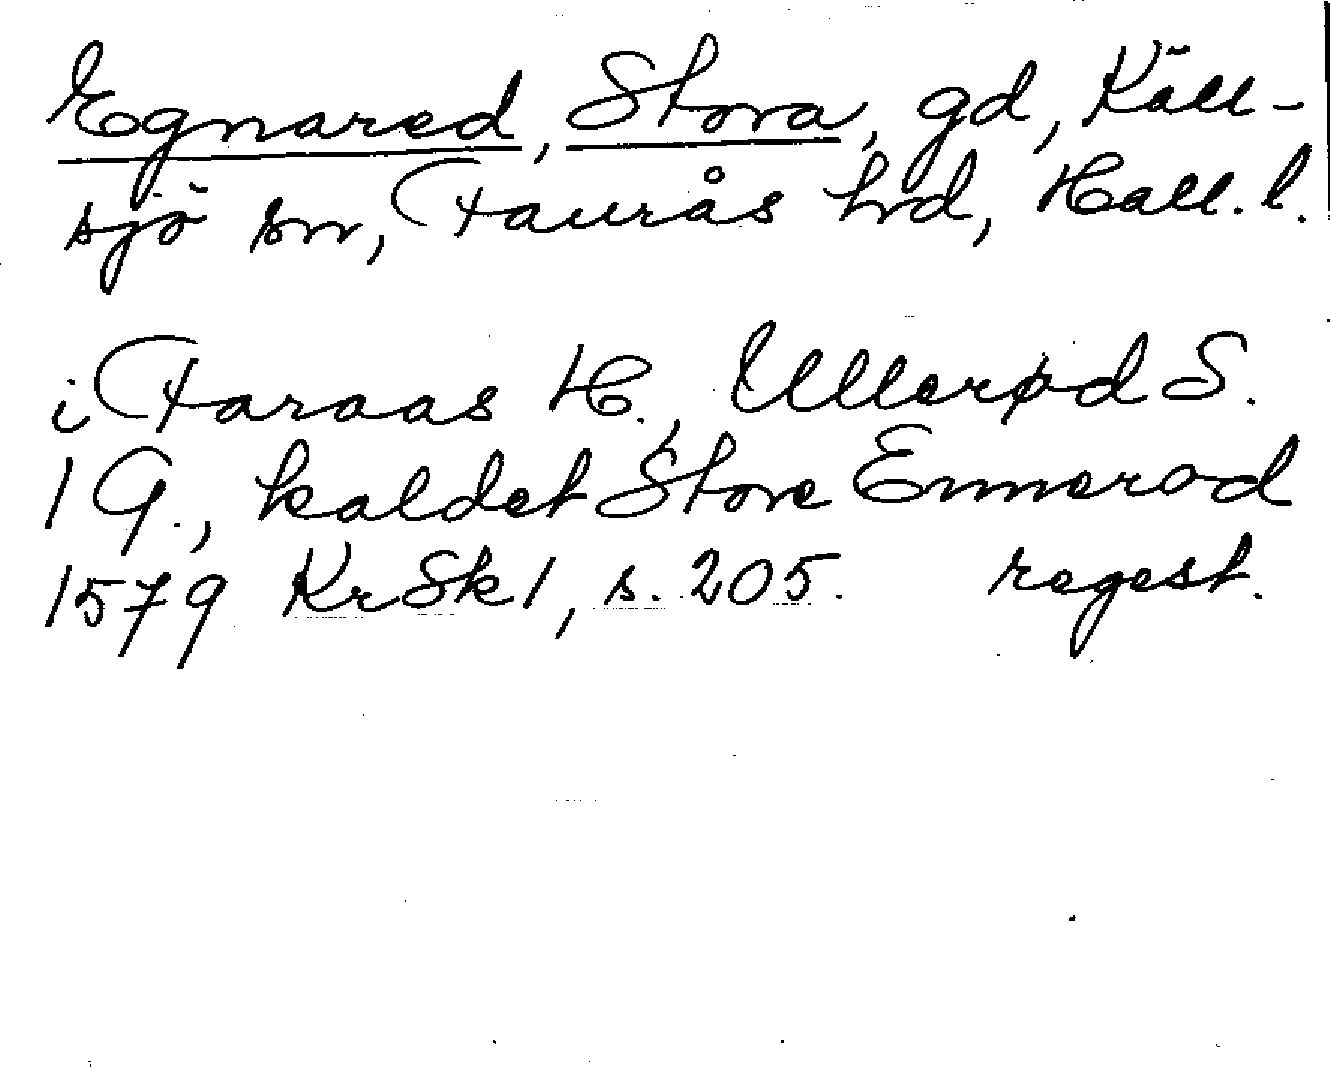 Egnared, Stora, gd, Käll-
sjö sn, Faurås hd, Hall. l.
i Faraas H., Ullerød S.
1 G., kaldet Store Ennerod
1579 KrSk 1, s. 205. regest.